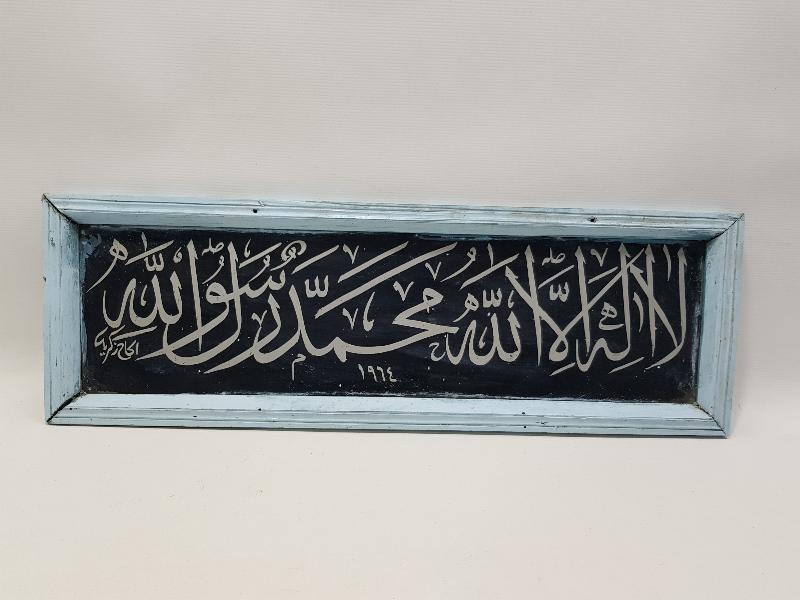 لا اله الا الله محمد رسول الله
١٩٦٤
الحاج زكريا